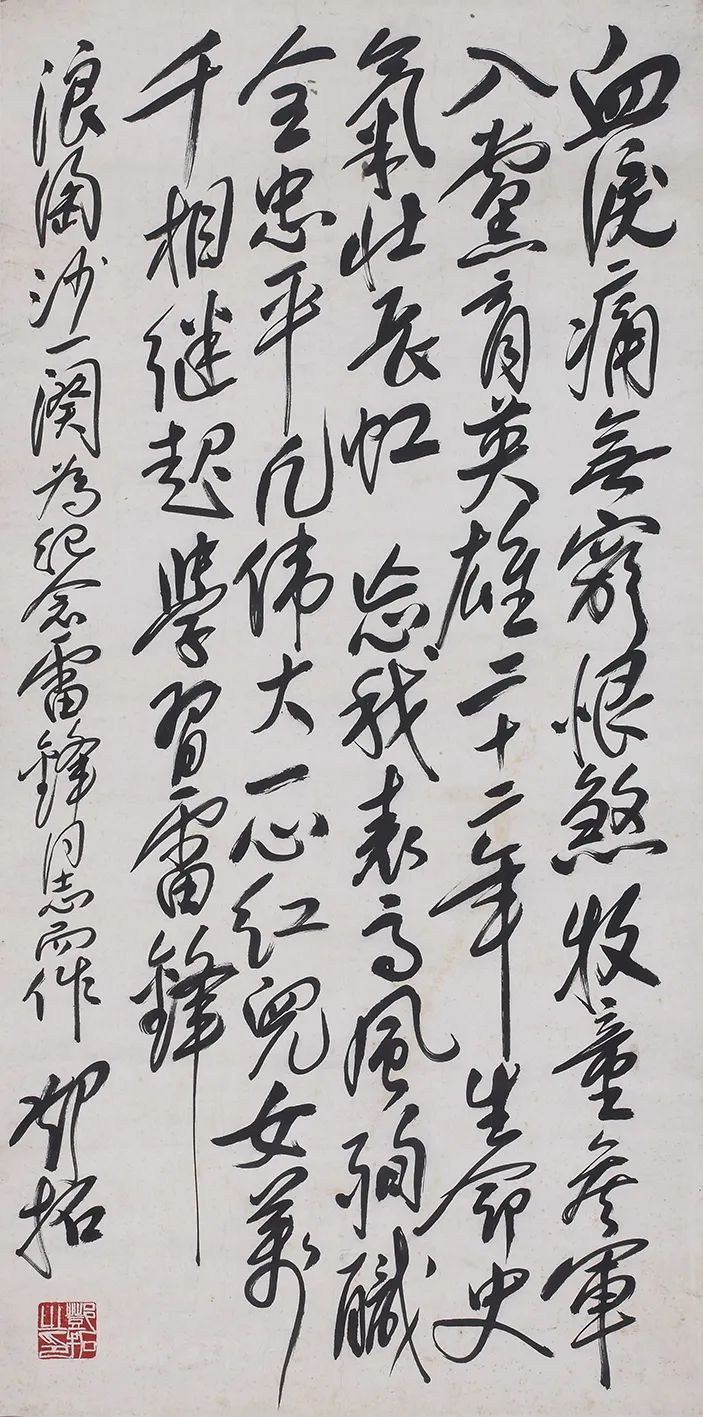 血淚痛無窮恨煞牧童參軍
入黨育英雄二十二年生命史
氣壯長虹 忘我表高風殉職
全忠平凡偉大一心红兒女萬
千相継起學習雷鋒
浪淘沙一闋為紀念雷鋒同志而作 鄧拓
鄧拓之印